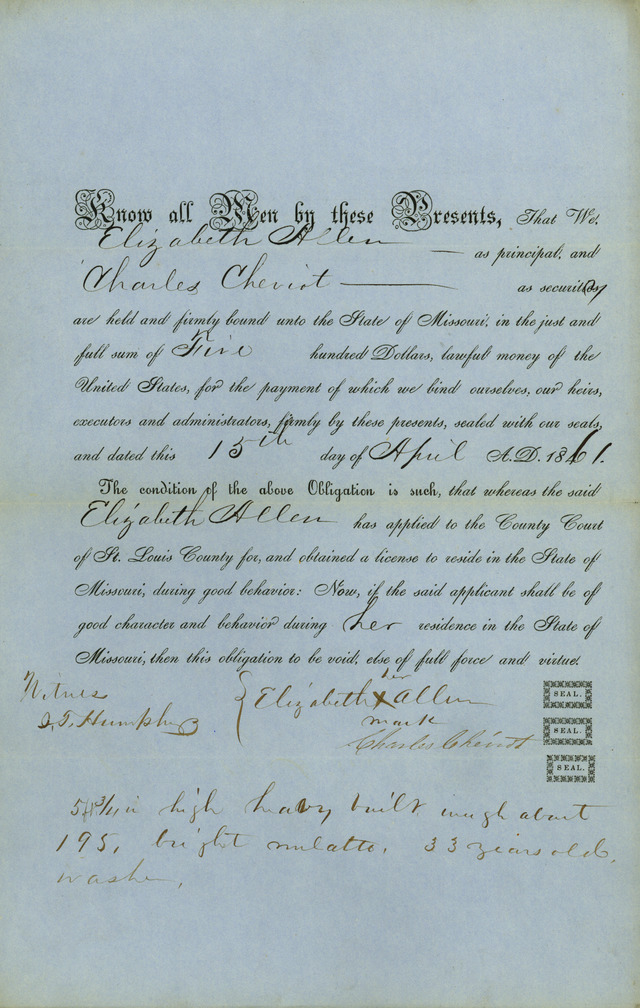 Know all Men by these Presents, That We,
Elizabeth Allen — as principal, and
Charles Cheviot — as securit
are held and firmly bound unto the State of Missouri, in the just and
full sum of Five hundred Dollars, lawful money of the
United States, for the payment of which we bind ourselves, our heirs,
executors and administrators, firmly by these presents, sealed with our seals,
and dated this 15th day of April A.D. 1861.
The condition of the above Obligation is such, that whereas the said
Elizabeth Allen has applied to the County Court
of St. Louis County for, and obtained a license to reside in the State of
Missouri, during good behavior: Now, if the said applicant shall be of
good character and behavior during her residence in the State of
Missouri, then this obligation to be void, else of full force and virtue.
her
Witness Elizabeth X Allen SEAL.
mark
Humphry Charles Cheviot SEAL.
SEAL.
in high heavy built weigh about
195, bright mulatto, 33 years old,
washer,